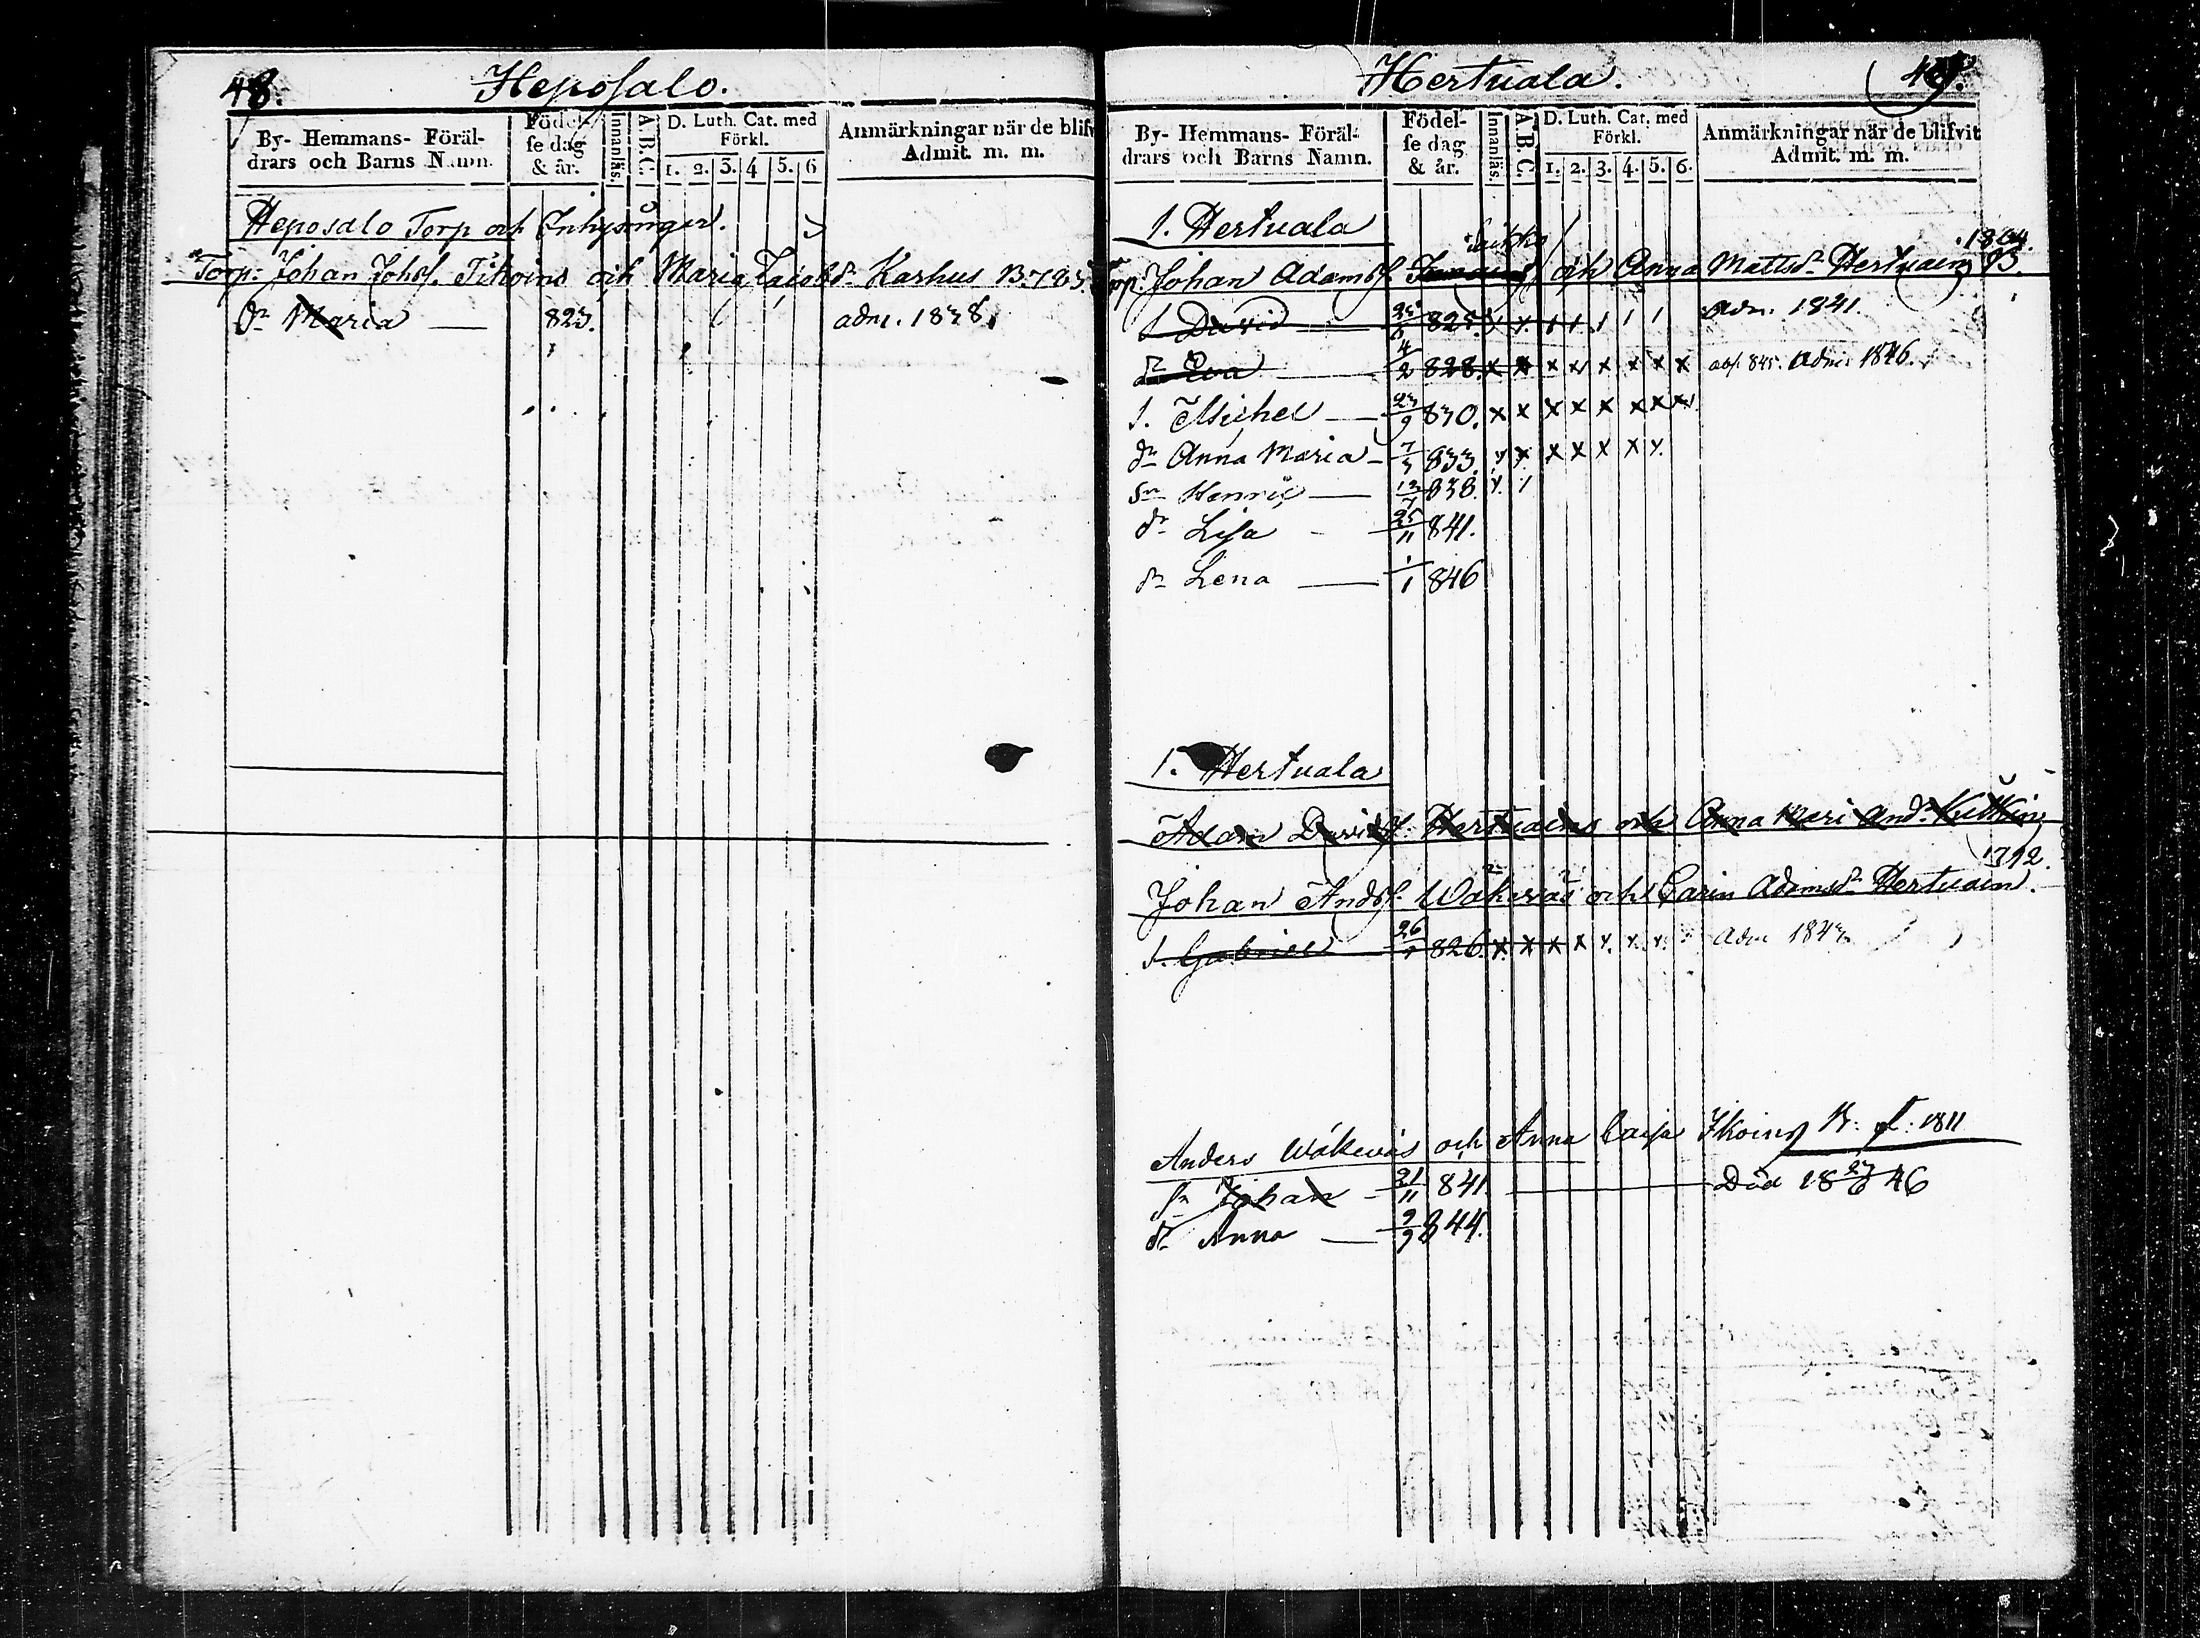 48. Heposalo.
By- Hemmans- Föräl-
drars och Barns Namn.
Födel-
se dag
& år.
Innanläs.
A.B.C.
D. Luth. Cat. med
Förkl.
1. 2. 3. 4 5. 6
Anmärkningar när de blifv
Admit. m. m.
Heposalo Torp och Inhysingar.
Torp: Johan Johsf. Tikoins och Maria Jacobsdr Karhus B. 785.
dr Maria — 823. adm. 1838.
Hertuala. 49.
By- Hemmans- Föräl-
drars och Barns Namn.
Födel-
se dag
& år.
Innanläs.
A.B.C.
D. Luth. Cat. med
Förkl.
1. 2. 3. 4. 5. 6.
Anmärkningar när de blifvit
Admit. m. m.
1. Hertuala
1804.
Torp. Johan Adamsf. och Anna Mattsdr Hertuain B.
s David 825. x x x x x x x adm. 1841.
dr Eva — 4/2 828. x x x x x x x x abs. 845. Adm. 1846.
s. Michel — 23/9 830. x x x x x x x x
dr Anna Maria — 833. x x x x x x x
sn Henric — 12/7 838. x x
dr Lisa - 25/11 841.
dr Lena — 1/1 846
1. Hertuala
Adam Davidsf. Hertuains och Anna Mari Andr
1792.
Johan Andsf. Wäkeväs och Carin Adamsdr Hertuain.
s. Gabriel 826. x x x x x x x Adm 1843
Anders Wäkeväs och Anna Caisa Ikoins B. f. 1811
sn Johan - 21/11 841. — Död 18 27/6 46
dr Anna — 9/9 844.